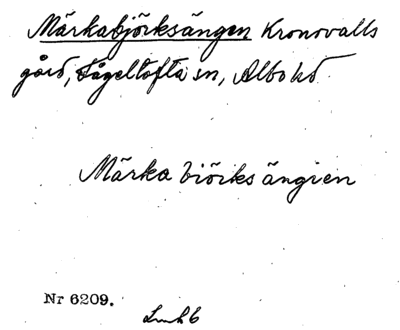 Märkabjörksängen Kronovalls
gård, Fågeltofta sn, Albo hd
Märka biörks ängien
Nr 6209.